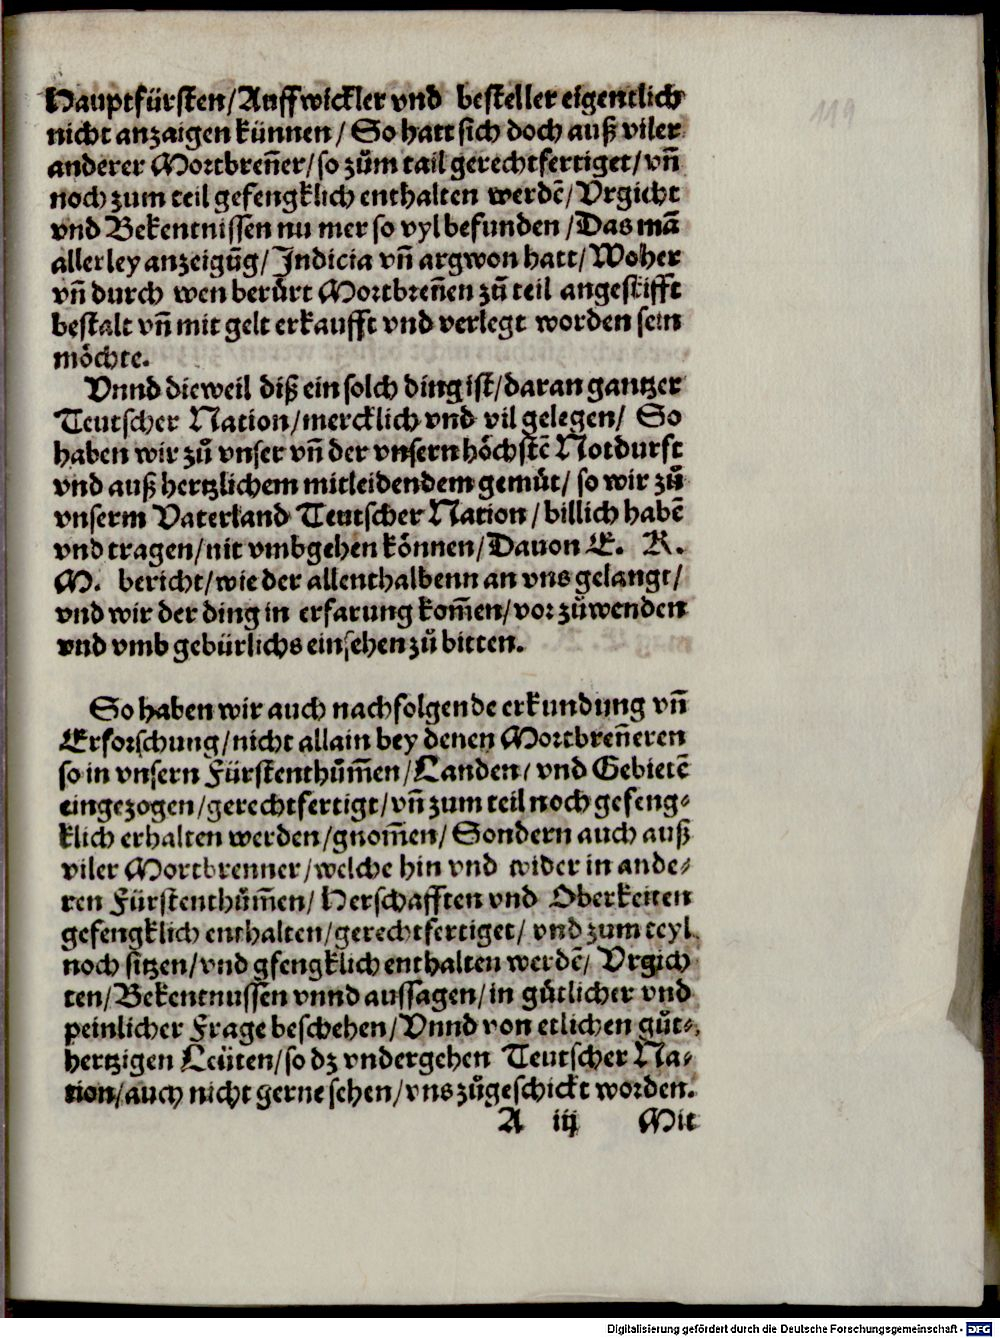 Hauptfürsten/Auffwickler vnd besteller eigentlich
nicht anzaigen künnen/ So hatt sich doch auß viler
anderer Mortbreñer/so zům tail gerechtfertiget/vñ
noch zum teil gefengklich enthalten werdẽ/Vrgicht
vnd Bekentnissen nu mer so vyl befunden/Das mã
allerley anzeigũg/Indicia vñ argwon hatt/Woher
vñ durch wen berůrt Mortbreñen zů teil angestifft
bestalt vñ mit gelt erkaufft vnd verlegt worden sein
möchte.
Vnnd dieweil diß ein solch ding ist/daran gantzer
Teutscher Nation/mercklich vnd vil gelegen/ So
haben wir zů vnser vñ der vnsern höchstẽ Notdurft
vnd auß hertzlichem mitleidendem gemůt/ so wir zů
vnserm Vaterland Teutscher Nation/billich habẽ
vnd tragen/nit vmbgehen können/Dauon E. K.
M. bericht/wie der allenthalbenn an vns gelangt/
vnd wir der ding in erfarung kom̃en/vor zůwenden
vnd vmb gebürlichs einsehen zů bitten.
So haben wir auch nachfolgende erkundung vñ
Erforschung/nicht allain bey denen Mortbreñeren
so in vnsern Fürstenthům̃en/Landen/vnd Gebietẽ
eingezogen/gerechtfertigt/vñ zum teil noch gefeng⸗
klich erhalten werden/gnom̃en/Sondern auch auß
viler Mortbrenner/welche hin vnd wider in ande⸗
ren Fürstenthům̃en/Herschafften vnd Oberkeiten
gefengklich enthalten/gerechtfertiget/ vnd zum teyl
noch sitzen/vnd gfengklich enthalten werdẽ/ Vrgich
ten/Bekentnussen vnnd aussagen/in gůtlicher vnd
peinlicher Frage beschehen/Vnnd von etlichen gůt⸗
hertzigen Leüten/so dz vndergehen Teutscher Na⸗
tion/auch nicht gerne sehen/vns zůgeschickt worden.
A iij Mit
119
Digitalisierung gefördert durch die Deutsche Forschungsgemeinschaft - DFG